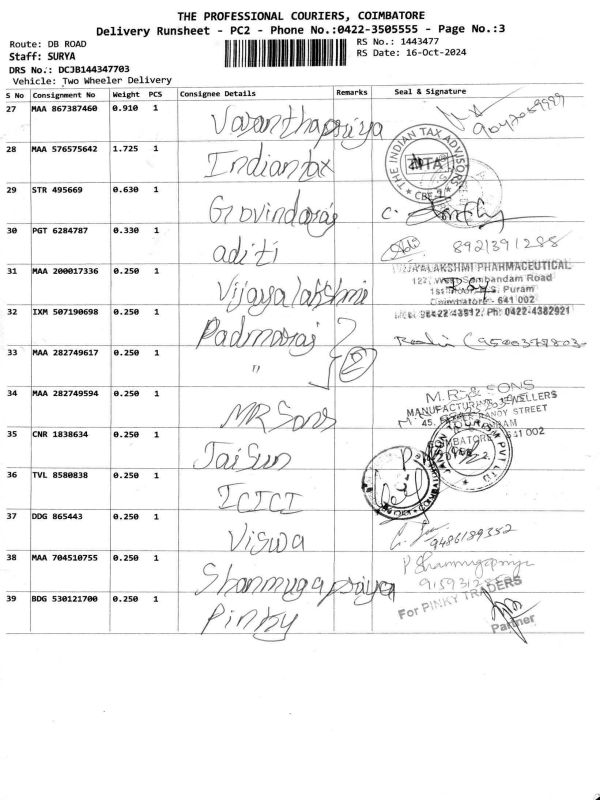 THE PROFESSIONAL COURIERS, COIMBATORE
Delivery Runsheet - PC2 - Phone No.:0422-3505555 - Page No.:3
Route: DB ROAD RS No.: 1443477
Staff: SURYA RS Date: 16-Oct-2024
DRS No.: DCJB144347703
Vehicle: Two Wheeler Delivery
S No Consignment No Weight PCS Consignee Details Remarks Seal & Signature
27 MAA 867387460 0.910 1 Vasanthapriya
28 MAA 576575642 1.725 1 Indiantax THE INDIAN TAX ADVISORS ITA CBE-2
29 STR 495669 0.630 1 Govindaraj C.
30 PGT 6284787 0.330 1 aditi 8921391288
31 MAA 200017336 0.250 1 Vijayalakshmi VIJAYALAKSHMI PHARMACEUTICAL
127, West Sambandam Road
R.S. Puram
Coimbatore - 641 002
Ph: 0422-4382921
32 IXM 507190698 0.250 1 Padmaraj
33 MAA 282749617 0.250 1 " 2
34 MAA 282749594 0.250 1 MR Sons M.R. & SONS
MANUFACTURING JEWELLERS
45, STREET
COIMBATORE - 641 002
35 CNR 1838634 0.250 1 Jaisun JAYSON TOURISM PVT LTD
36 TVL 8580838 0.250 1 ICICI
37 DDG 865443 0.250 1 Viswa 9486189352
38 MAA 704510755 0.250 1 Shanmugapriya P Shanmugapriya
39 BDG 530121700 0.250 1 Pinky For PINKY TRADERS
Partner